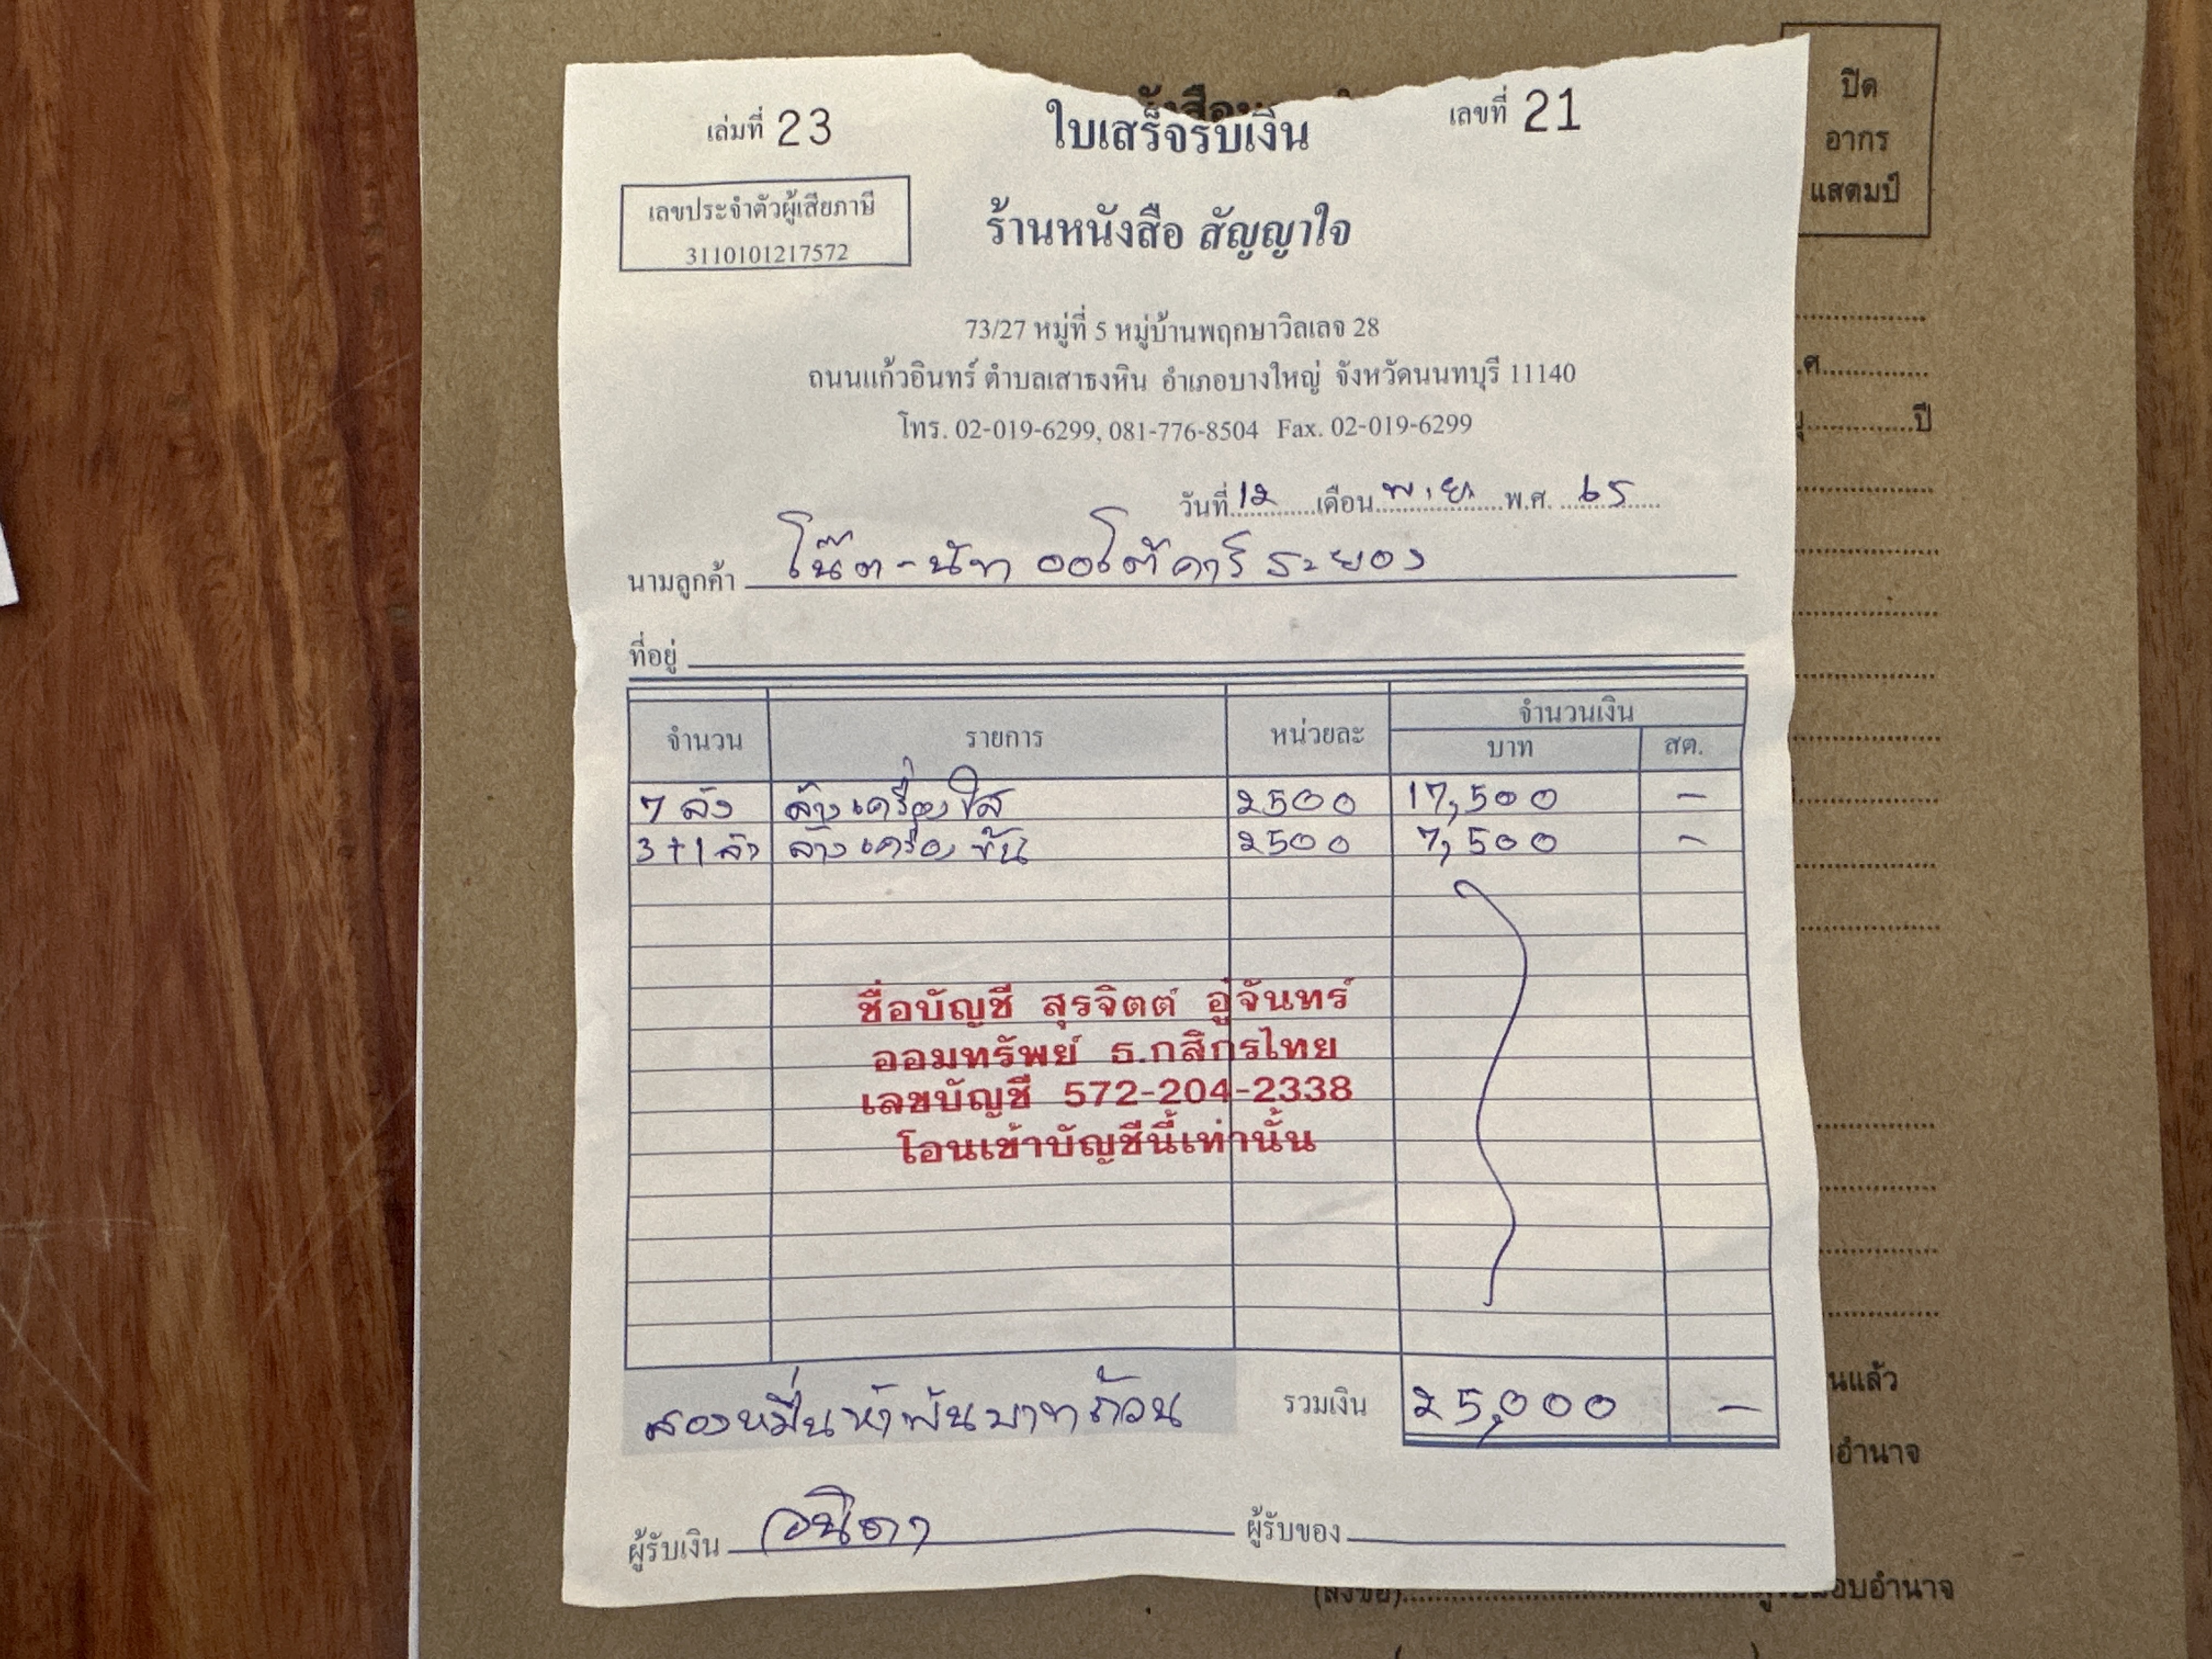 เล่มที่ 23
ใบเสร็จรับเงิน
เลขที่ 21
เลขประจำตัวผู้เสียภาษี
3110101217572
ร้านหนังสือ สัญญาใจ
73/27 หมู่ที่ 5 หมู่บ้านพฤกษาวิลเลจ 28
ถนนแก้วอินทร์ ตำบลเสาธงหิน อำเภอบางใหญ่ จังหวัดนนทบุรี 11140
โทร. 02-019-6299, 081-776-8504 Fax. 02-019-6299
วันที่ 12 เดือน พ.ย. พ.ศ. 65
นามลูกค้า โน๊ต-นัท ออโต้คาร์ ระยอง
ที่อยู่
จำนวน รายการ หน่วยละ จำนวนเงิน
บาท สต.
7 ลัง ล้างเครื่องใส 2500 17,500 -
3+1 ลัง ล้างเครื่อง ข้น 2500 7,500 -
ชื่อบัญชี สุรจิตต์ อู่จันทร์
ออมทรัพย์ ธ.กสิกรไทย
เลขบัญชี 572-204-2338
โอนเข้าบัญชีนี้เท่านั้น
สองหมื่นห้าพันบาทถ้วน รวมเงิน 25,000 -
ผู้รับเงิน วนิดา ผู้รับของ
ปิด
อากร
แสตมป์
ปี
นแล้ว
อำนาจ
(ลงชื่อ)
อบอำนาจ